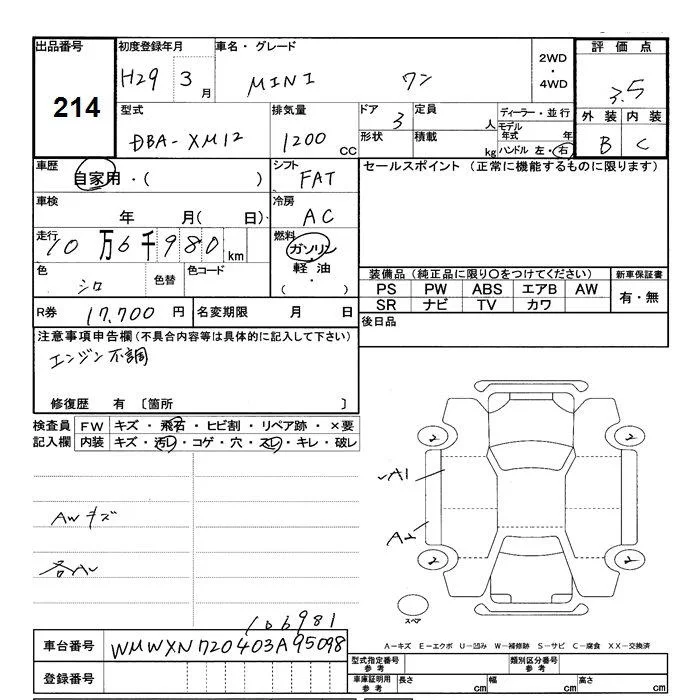 出品番号 初度登録年月 車名・グレード 評価点
214
H29 3月 MINI ワン 2WD・4WD 3.5
外装 内装
B C
型式 排気量 ドア 定員 ディーラー・並行
DBA-XM12 1200cc 3 人 モデル年式 年
形状 積載 kg ハンドル 左・右
車歴 シフト セールスポイント (正常に機能するものに限ります)
自家用・( ) FAT
車検 冷房
年 月( 日) AC
走行 燃料
10万6千980km ガソリン・軽油・( )
色 色替 色コード
シロ
装備品 (純正品に限り○をつけてください) 新車保証書
PS PW ABS エアB AW 有・無
SR ナビ TV カワ
R券 17,700円 名変期限 月 日
後日品
注意事項申告欄 (不具合内容等は具体的に記入して下さい)
エンジン不調
修復歴 有 〔箇所 〕
検査員記入欄 FW キズ・飛石・ヒビ割・リペア跡・×要
内装 キズ・汚レ・コゲ・穴・スレ・キレ・破レ
AWキズ
各AU
2 2
A1
A2
2 2
スペア
106981
A-キズ E-エクボ U-凹み W-補修跡 S-サビ C-腐食 XX-交換済
車台番号 WMWXN720403A95098
登録番号
型式指定番号 参考 類別区分番号 参考
車庫証明用 参考 長さ cm 幅 cm 高さ cm